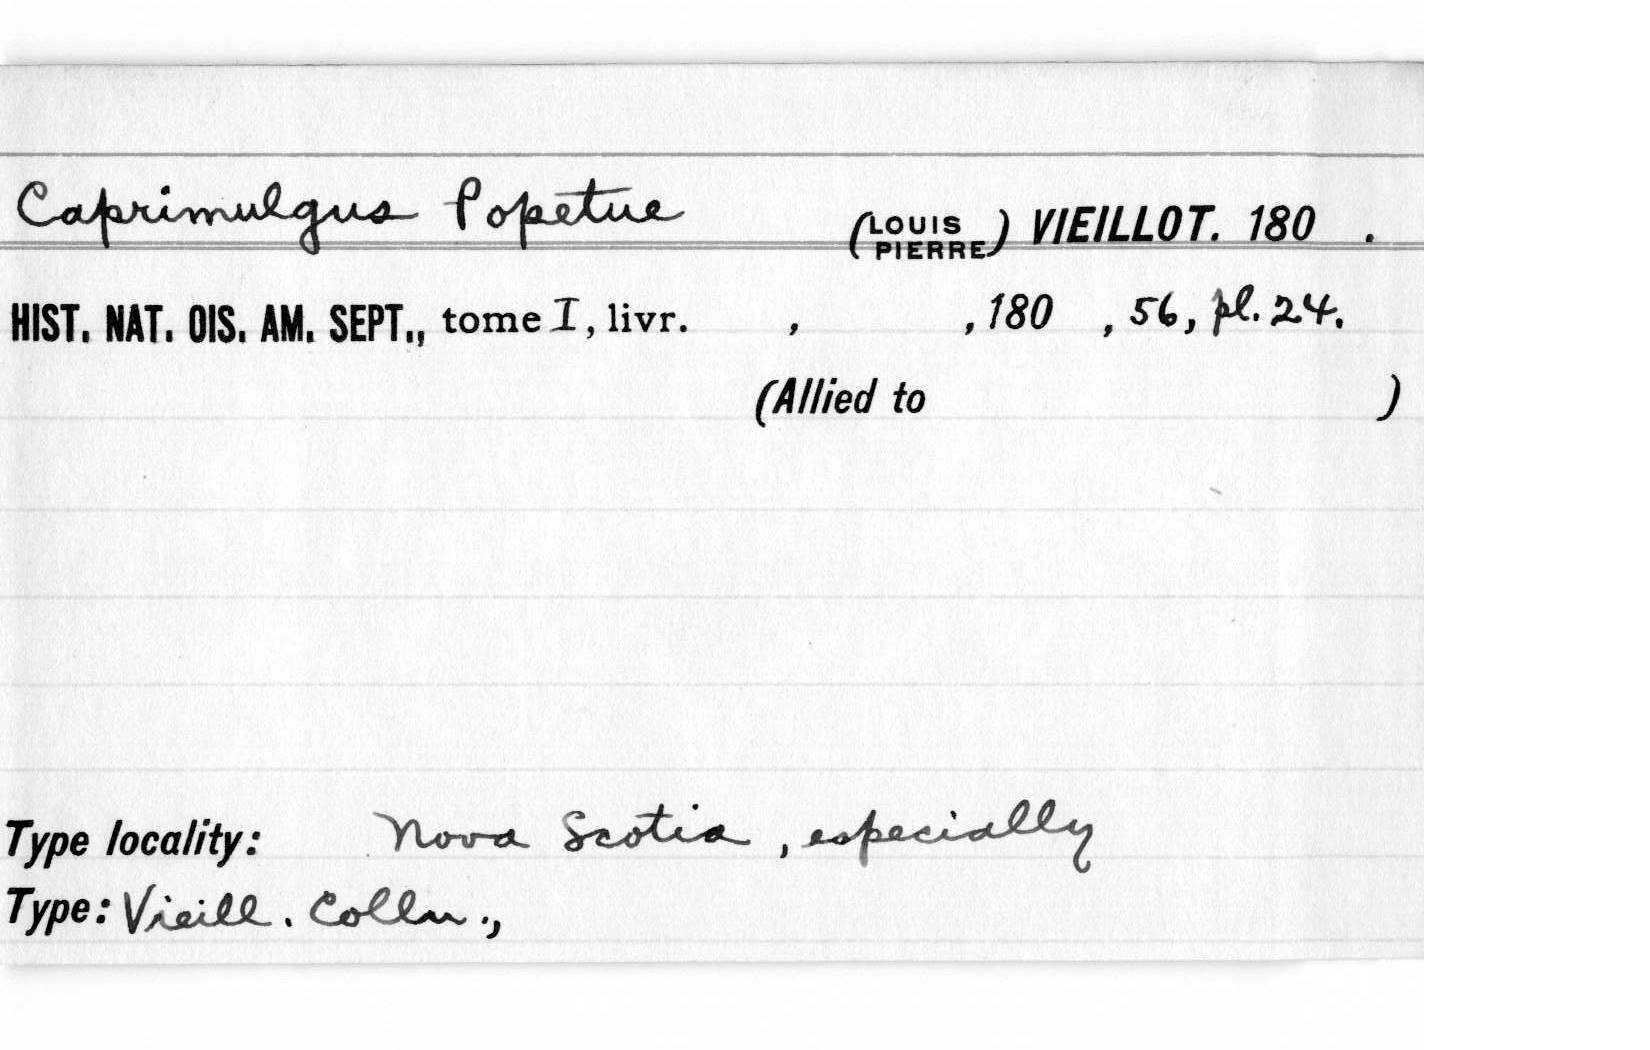 Caprimulgus Popetue (LOUIS PIERRE) VIEILLOT. 180 .
HIST. NAT. OIS. AM. SEPT., tome I, livr. , , 180 , 56, pl. 24.
(Allied to )
Type locality: Nova Scotia, especially
Type: Vieill. Colln.,